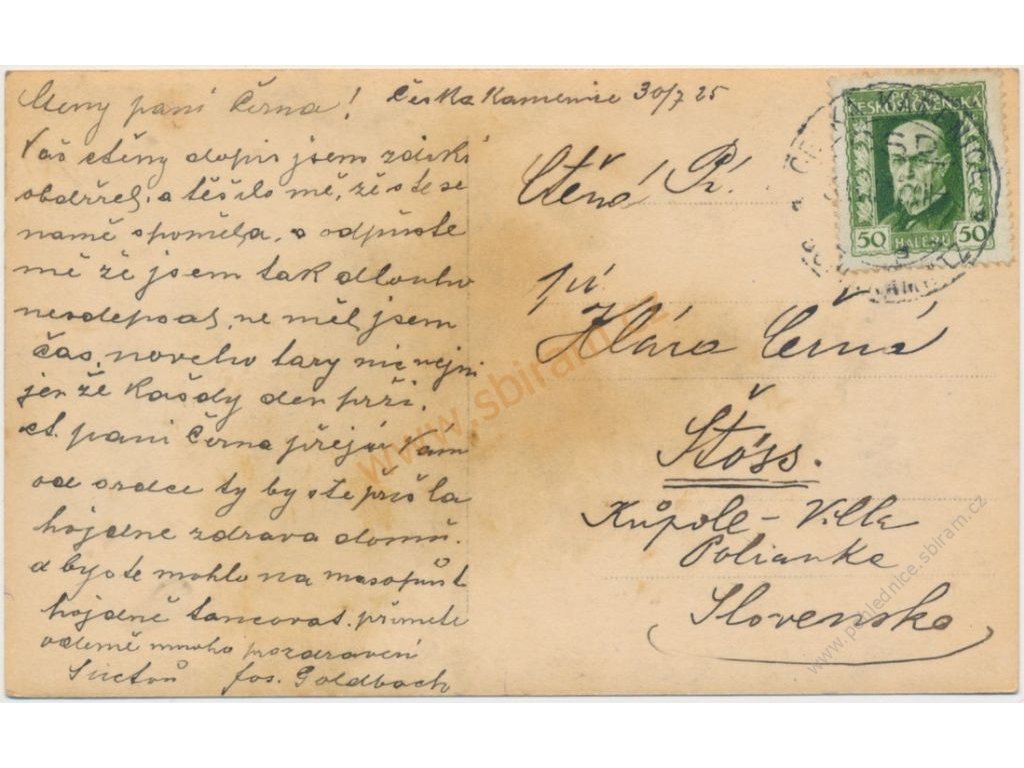 Cteny pani Černa!
Česka Kamenice 30/7 25
Váš ctěny dopis jsem zdeki
obdržel, a těšilo mě, že ste se
namě spoměla, a odpuste
mě že jsem tak dlouho
neodepsal, ne měl jsem
čas, noveho tary nic nejni
jen že Každy den prži.
ct. pani Černa přeju Vám
od srdce ty by ste přišla
hojdne zdrava domů.
a byste mohla na masopust
hojdně tancovat. přimete
odemě mnoho pozdraveni
Jos. Goldbach
Ctěná Pí.
pí
Klára Černá
Štóss.
Kůpele - Villa
Polianka
Slovensko
ČESKOSLOVENSKÁ
50 HALÉŘŮ 50
www.sbiram.cz
www.pohlednice.sbiram.cz